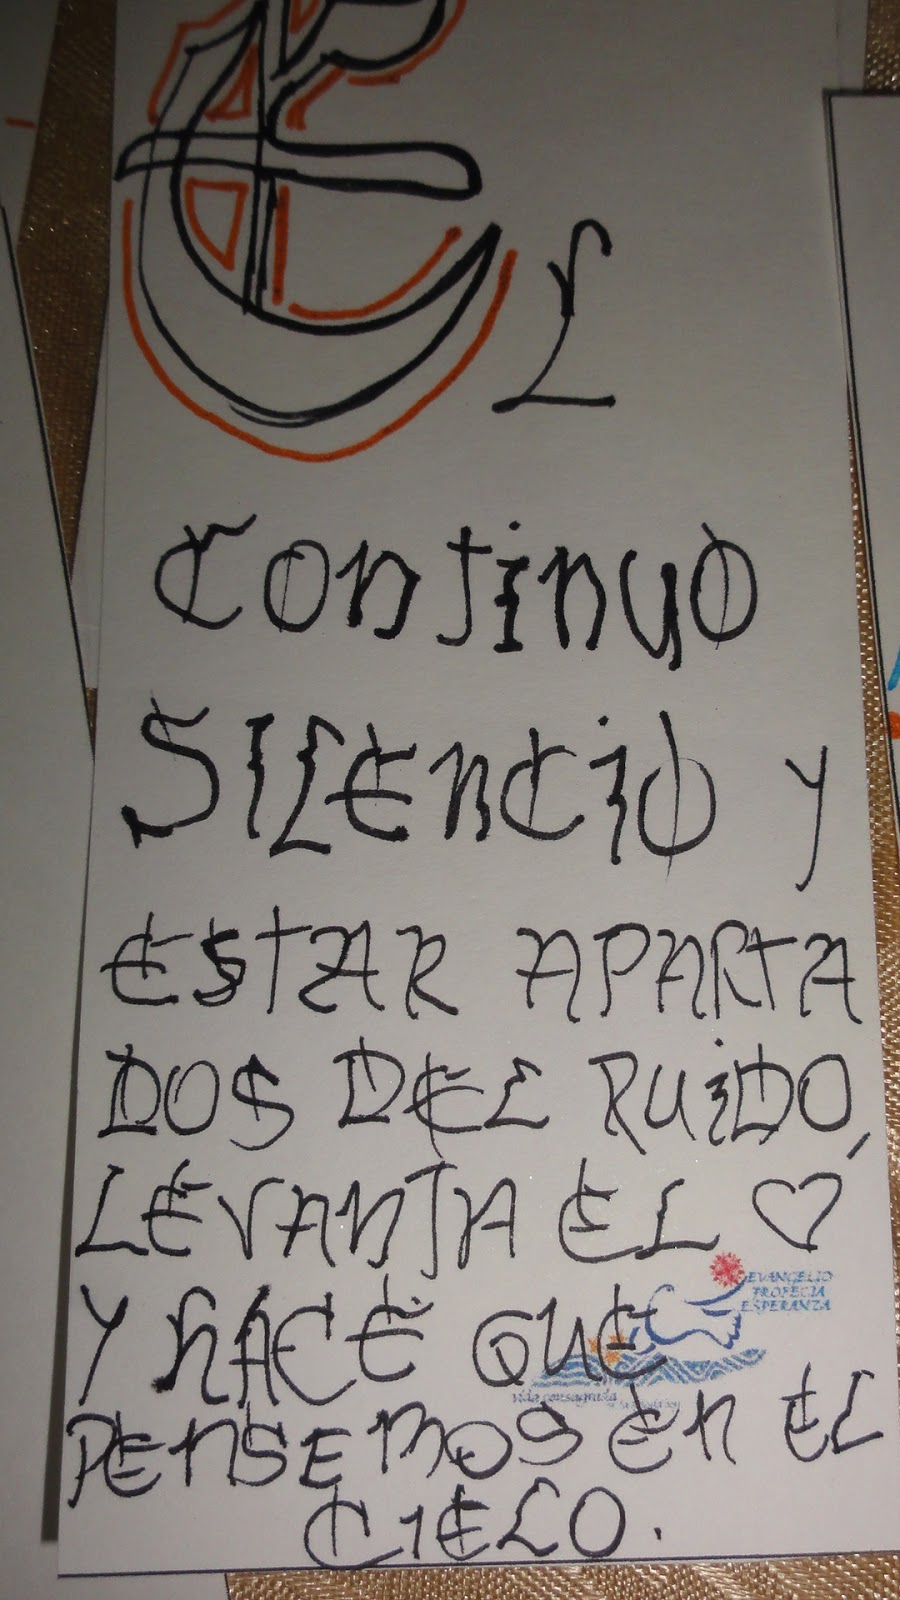 EL
CONTINUO
SILENCIO Y
ESTAR APARTA
DOS DEL RUIDO,
LEVANTA EL ♡
Y HACE QUE
PENSEMOS EN EL
CIELO.
EVANGELIO
PROFECIA
ESPERANZA
vida consagrada